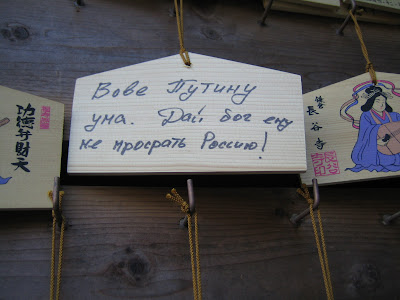 Вове Путину
ума. Дай бог ему
не просрать Россию!
功徳弁財天
鎌倉
長谷寺